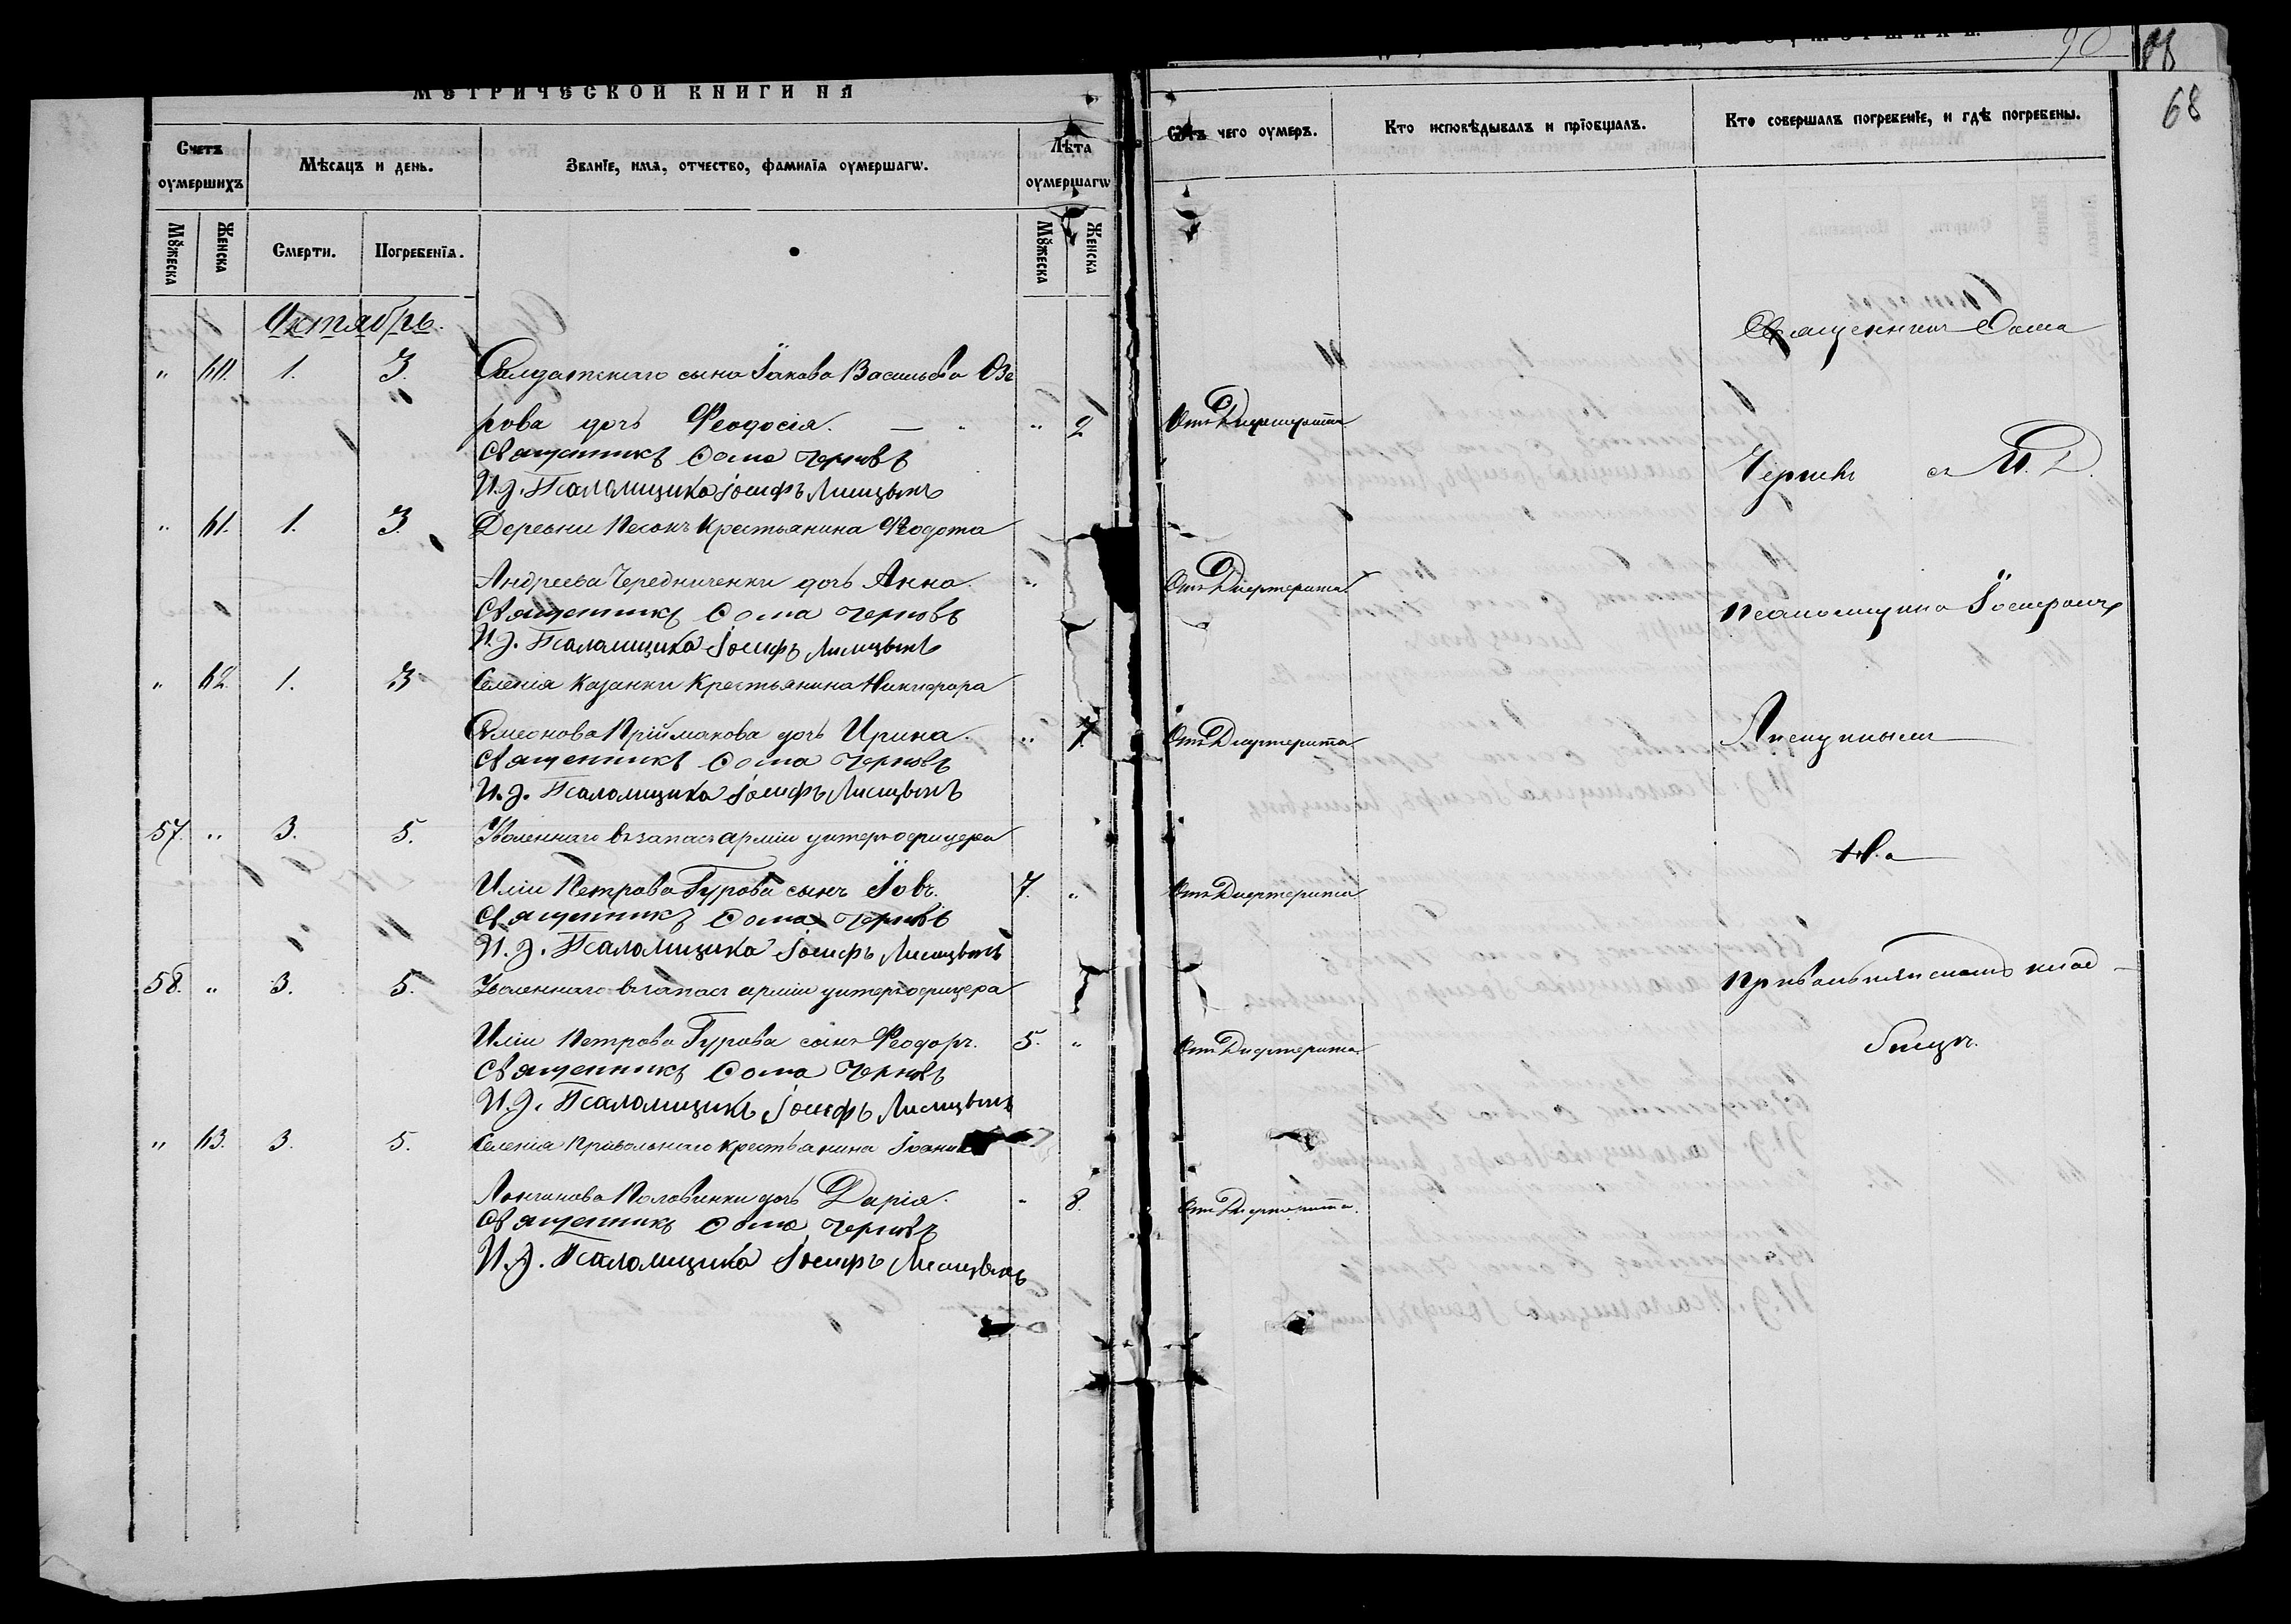 МЕТРИЧЕСКОЙ КНИГИ НА
90
68
Счетъ оумершихъ
Мѣсяцъ и день.
Званіе, имя, отчество, фамилія оумершагѡ.
Лѣта оумершагѡ
Отъ чего оумеръ.
Кто исповѣдывалъ и пріобщалъ.
Кто совершалъ погребеніе, и гдѣ погребены.
Мꙋжеска
Женска
Смерти.
Погребенія.
Мꙋжеска
Женска
Октябрь.
Священникъ Ѳома
" 60. 1. 3. Салдатскаго сына Іакова Васильева Озе
рова дочь Ѳеодосія. — " " 2 Отъ Дифтерита
Священникъ Ѳома Черновъ
Черновъ съ И. Д.
И. д. Псаломщика Іосифъ Лисицынъ
" 61. 1. 3. Деревни Песокъ Крестьянина Ѳеодота
Андреева Чередниченки дочь Анна. " Отъ Дифтерита
Священникъ Ѳома Черновъ
Псаломщика Іосифомъ
И. д. Псаломщика Іосифъ Лисицынъ
" 62. 1. 3 Селенія Казанки Крестьянина Никифора
Симеонова Пріймакова дочь Ирина. " 7. Отъ Дифтерита
Лисицынымъ
Священникъ Ѳома Черновъ
И. д. Псаломщика Іосифъ Лисицынъ
57. " 3. 5. Уволеннаго въ запасъ арміи унтеръ-офицера
на
Иліи Петрова Гурова сынъ Іовъ. 7. " Отъ Дифтерита
Священникъ Ѳома Черновъ
И. д. Псаломщика Іосифъ Лисицынъ
58. " 3. 5. Уволеннаго въ запасъ арміи унтеръ-офицера
Привольнянскомъ клад-
Иліи Петрова Гурова сынъ Ѳеодоръ. 5. " Отъ Дифтерита
бищѣ.
Священникъ Ѳома Черновъ
И. д. Псаломщикъ Іосифъ Лисицынъ
" 63. 3. 5. Селенія Привольнаго крестьянина Іоанна
Лонгинова Половинки дочь Дарія. " 8. Отъ Дифтерита.
Священникъ Ѳома Черновъ
И. д. Псаломщика Іосифъ Лисицынъ